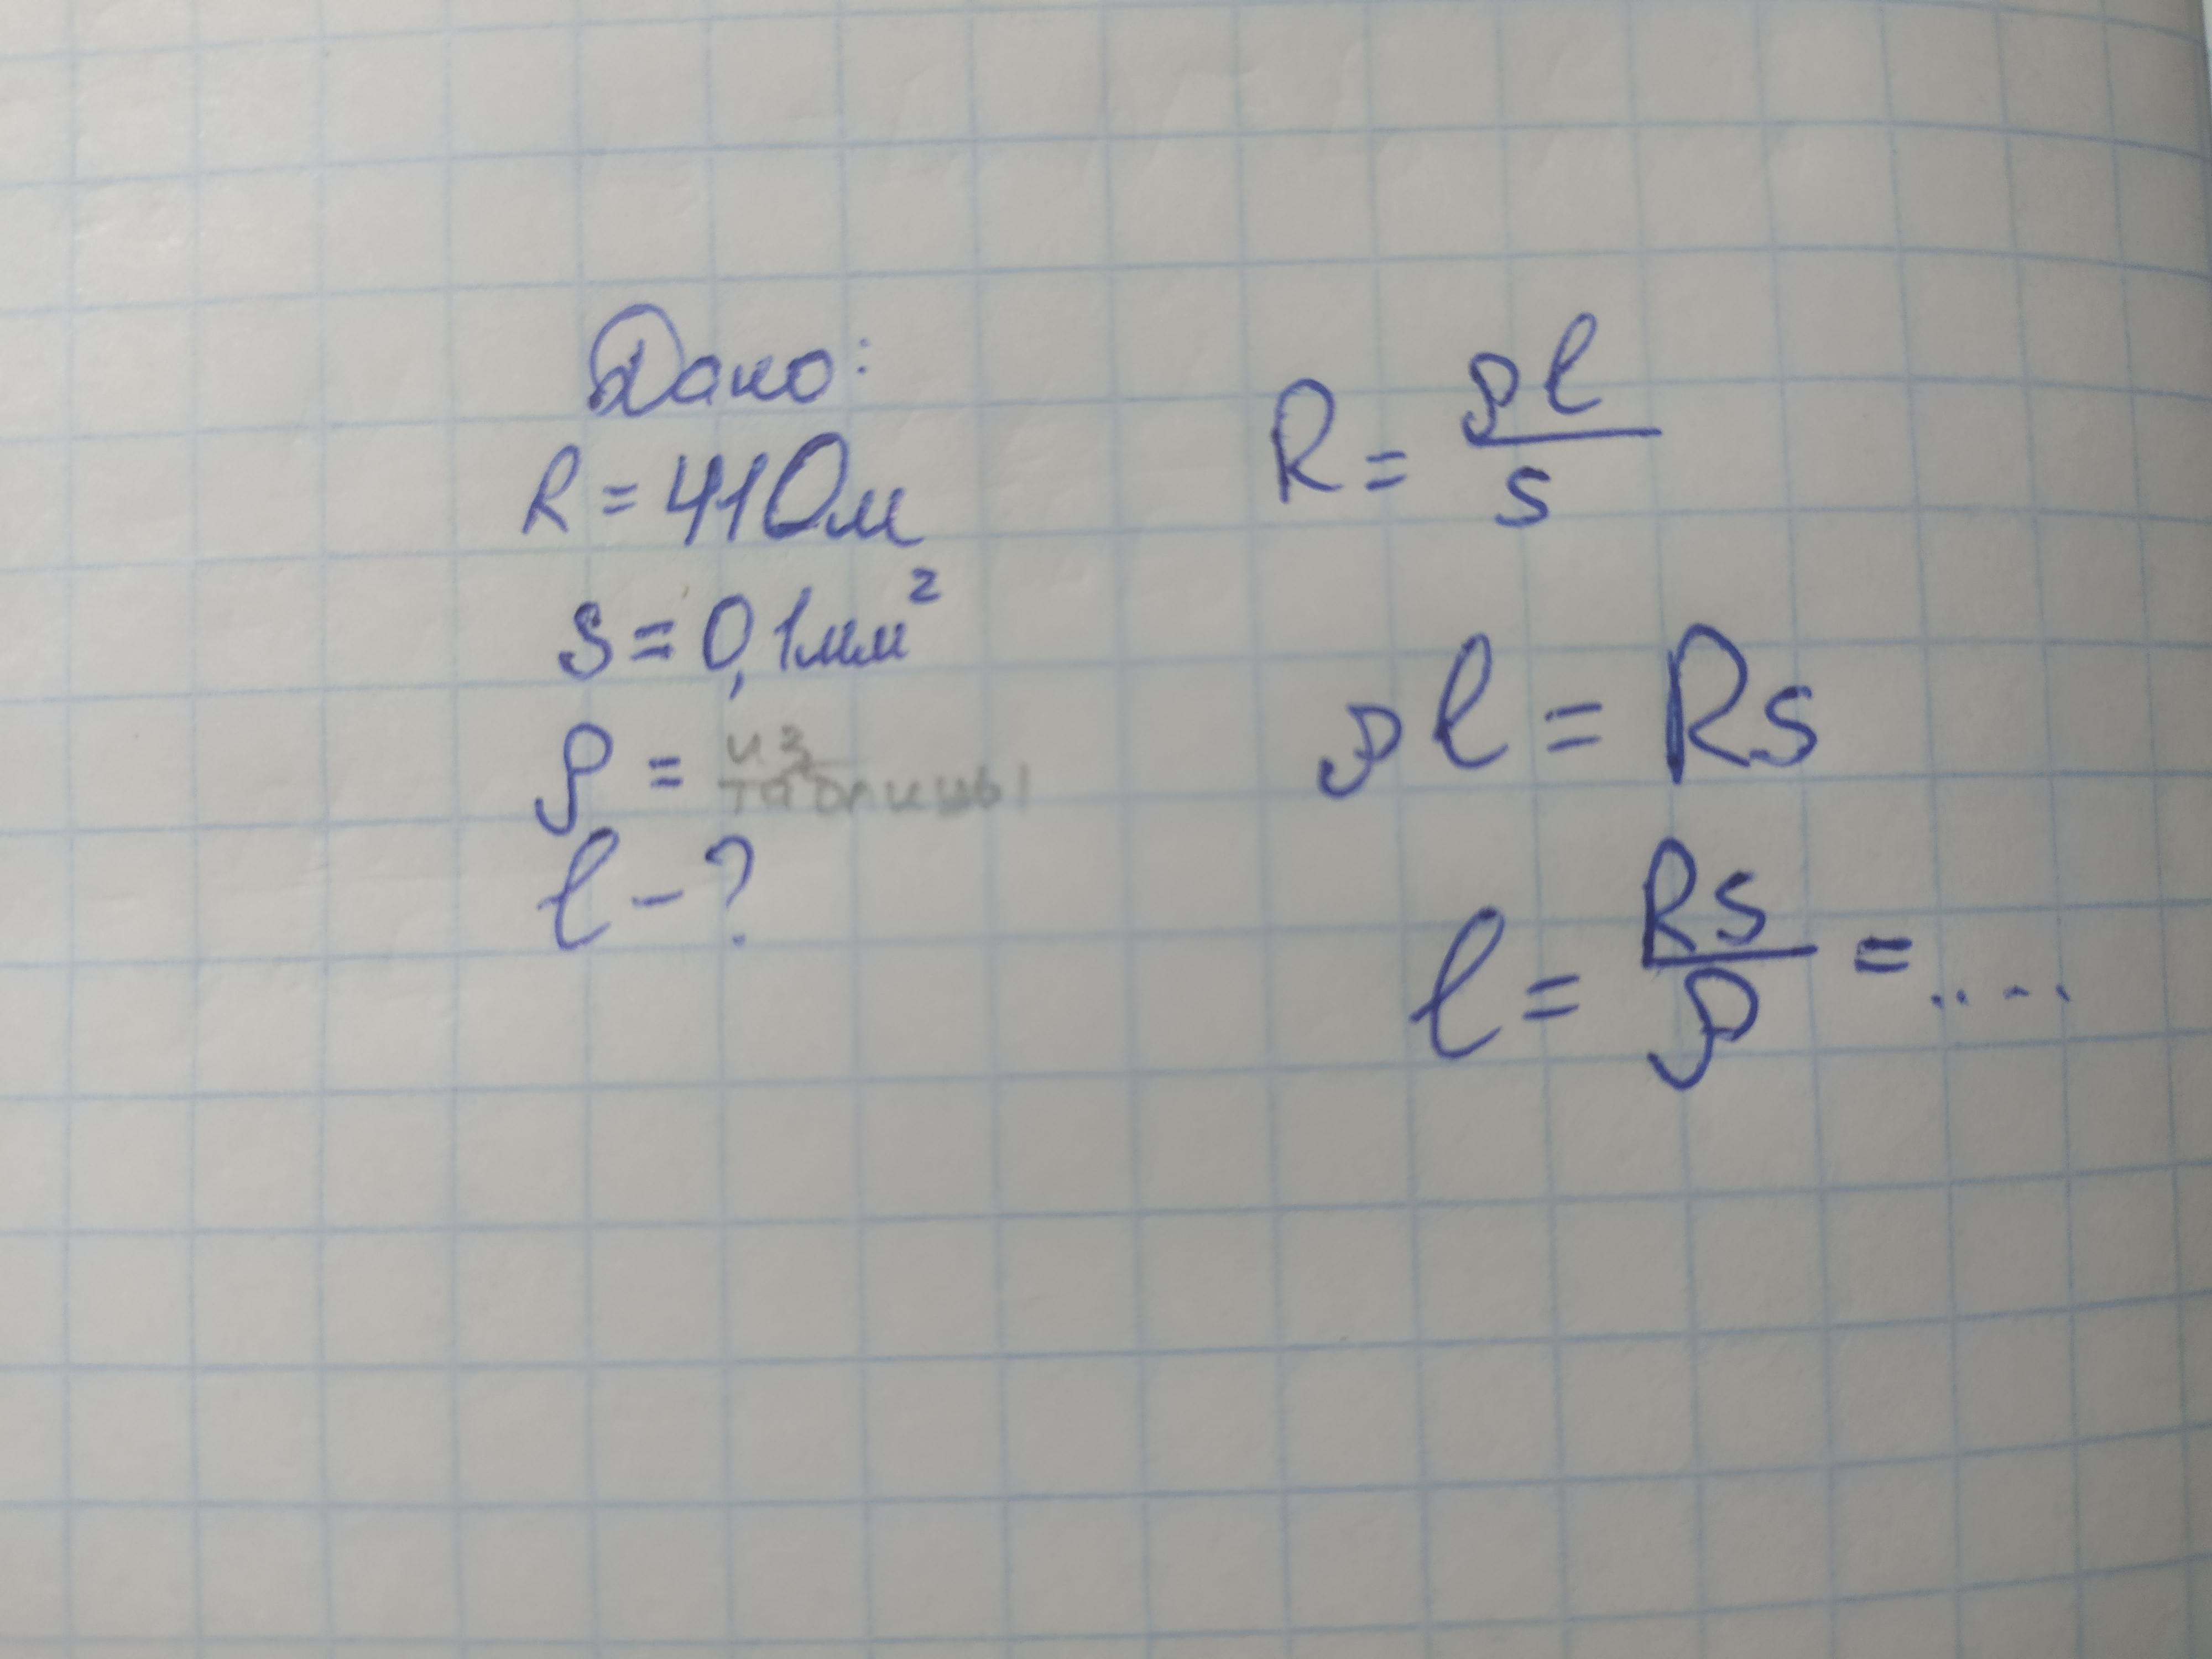 Дано:
R = 41 Ом
s = 0,1 мм²
ρ = из таблицы
l - ?
R = ρl/s
ρl = Rs
l = Rs/ρ = ....